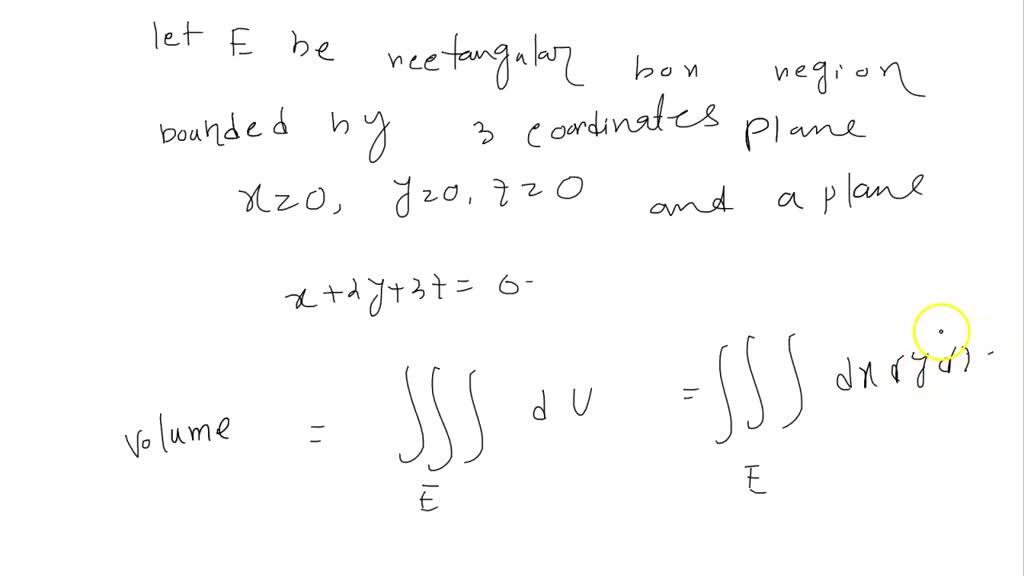 let E be rectangular box region
bounded by 3 coordinates plane
x=0, y=0, z=0 and a plane
x+2y+3z= 0
volume = ∭ dV = ∭ dx dy dz
E E